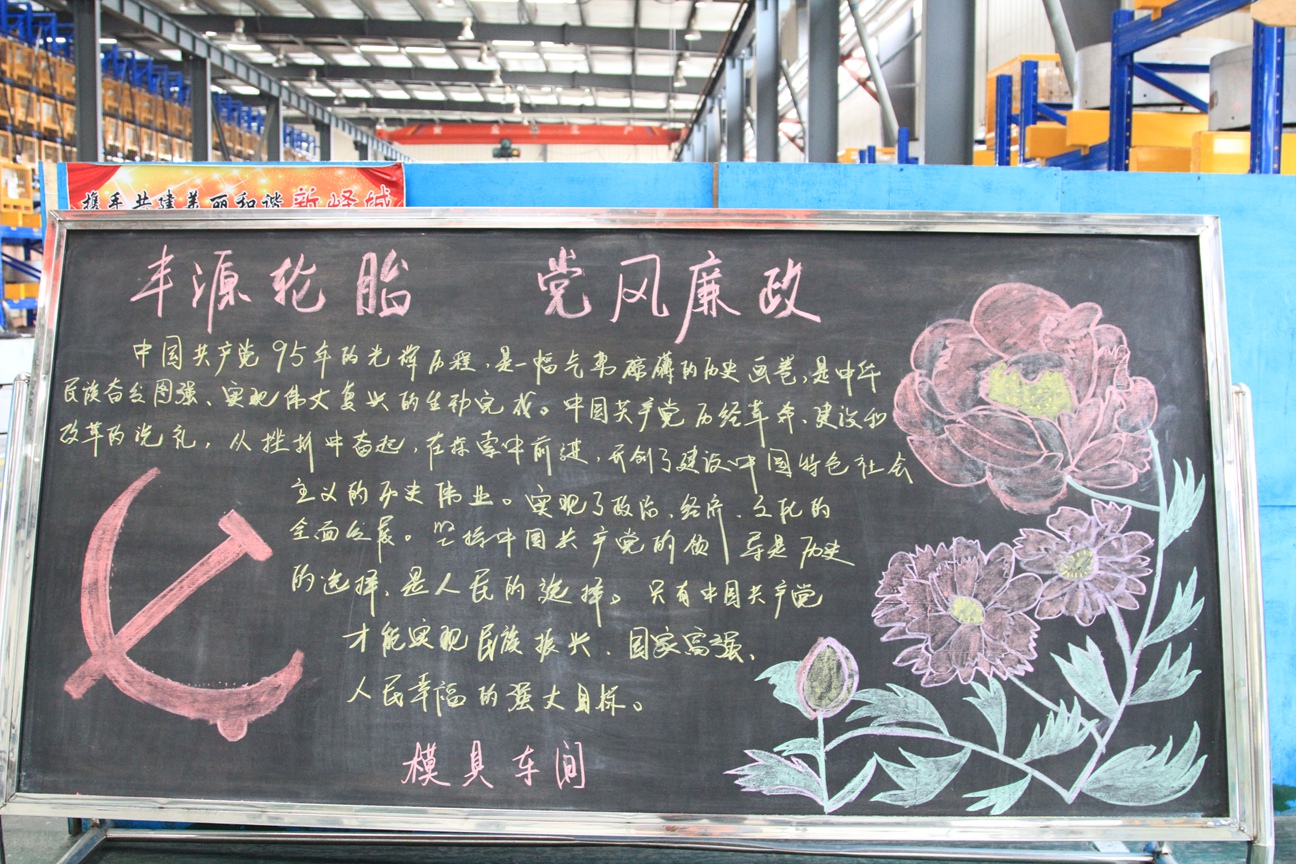 携手共建美丽和谐新峄城
丰源轮胎 党风廉政
中国共产党95年的光辉历程,是一幅气势磅礴的历史画卷,是中华
民族奋发图强、实现伟大复兴的生动完成。中国共产党历经革命、建设和
改革的洗礼,从挫折中奋起,在探索中前进,开创了建设中国特色社会
主义的历史伟业。实现了政治、经济、文化的
全面发展。坚持中国共产党的领导是历史
的选择,是人民的选择。只有中国共产党
才能实现民族振兴、国家富强、
人民幸福的强大目标。
模具车间